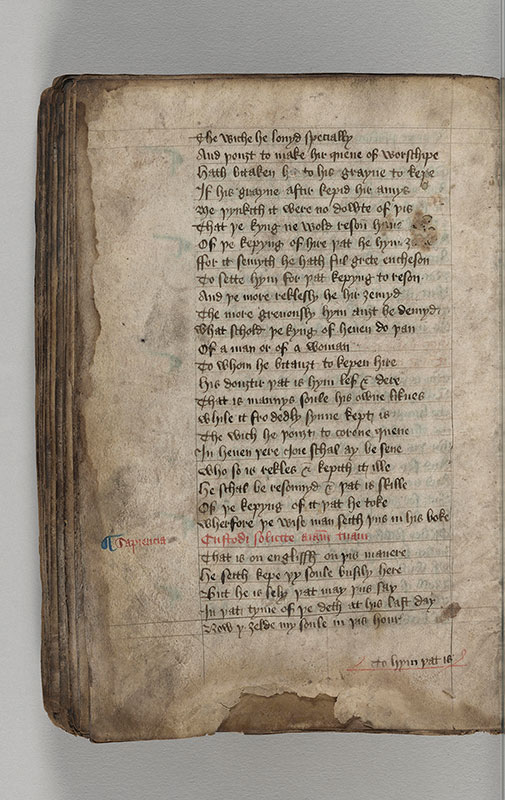 The wiche he lovyd specially
And þouȝt to make hir quene of worschipe
Hath bitaken to his grayne to kepe
If his grayne aftir kepid hir amys
Me þynkith it were no dowte of þis
That þe kyng ne wold reson have
Of þe kepyng of hire þat he hym
ffor it semyth he hath ful grete encheson
To sette hym for þat kepyng to reson
And þe more reklesly he hir ȝemyd
The more grevously hym auȝt be demyd
What schold þe kyng of heven do þan
Of a man or of a woman
To whom he bitauȝt to kepen hire
His douȝtir þat is hym lef & dere
That is mannys soule his owne liknes
While it fro dedly synne kept is
The wich he þouȝt to corone quene
In heven þere Joie schal ay be sene
Who so is rekles & kepith it ille
He schal be resonnyd & þat is skille
Of þe kepyng of it þat he toke
Wherfore þe wise man seith þus in his boke
¶ Sapiencia Custodi solicite aīam tuam
That is on englissh on þis manere
He seith kepe þy soule busily here
But he is sely þat may þus say
In þat tyme of þe deth at his last day
Now y ȝelde my soule in þis hour
To hym þat is